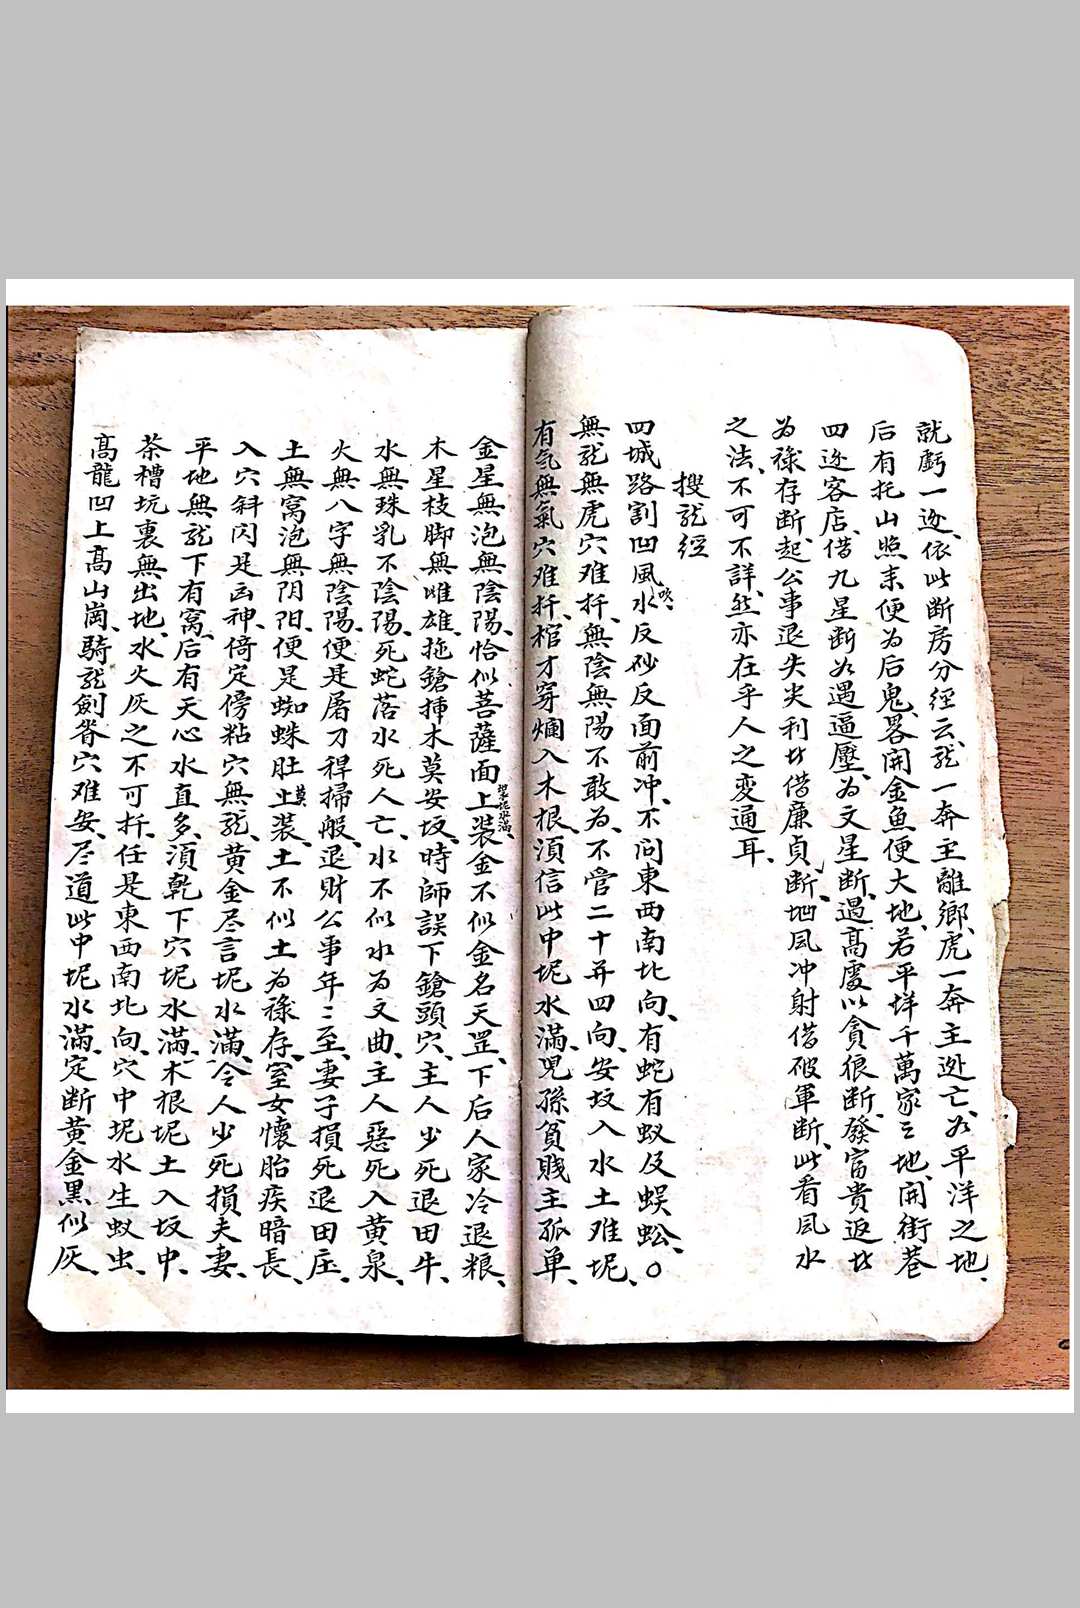 就虧一边、依此断房分經云、龙一奔主離鄉、虎一奔主迯亡、如平洋之地、
后有托山照来便为后鬼、畧開金魚便大地、若平垟千萬家之地、開街巷
四边客店、借九星断如遇逼壓、为文星断、過高處以貪狼断、發富貴返此
为祿存断、起公事退失尖利此借廉貞断、地风冲射借破軍断、此看风水
之法、不可不詳、然亦在乎人之变通耳、
搜龙經
四城路割凹風吹、水反砂反面前冲、不问東西南北向、有蛇有蚁及蜈蚣、○
無龙無虎穴难扦、無陰無陽不敢为、不管二十并四向、安坟入水土难坭、
有氣無氣穴难扦、棺才穿爛入木根、須信此中坭水滿、児孫貧賎主孤单、
金星無泡無陰陽、恰似菩薩面上装、金不似金名天罡、下后人家冷退粮、
木星枝脚無唯雄、拖鎗挿木莫安坟、時師誤下鎗頭穴、主人少死退田牛、
水無珠乳不陰陽、死蛇落水死人亡、水不似水为文曲、主人惡死入黄泉、
火無八字無陰陽、便是屠刀稈掃般、退財公事年〻至、妻子損死退田庄、
土無窩泡無阴阳、便是蜘蛛肚上莫装、土不似土为祿存、室女懷胎疾暗長、
入穴斜闪是凶神、倚定傍粘穴無龙、黄金尽言坭水滿、令人少死損夫妻、
平地無龙下有窩、后有天心水直多、須乾下穴坭水滿、木根坭土入坟中、
茶槽坑裏無出地、水火灰之不可扦、任是東西南北向、穴中坭水生蚁虫、
高龍凹上高山崗、騎龙劍脊穴难安、尽道此中坭水滿、定断黄金黑似灰、